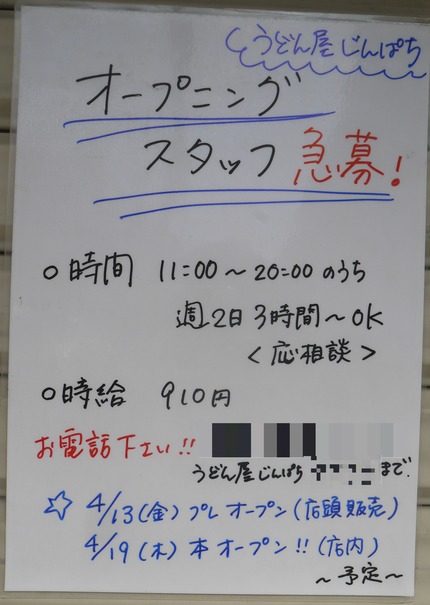 うどん屋じんぱち
オープニング
スタッフ急募!
○時間 11:00～20:00のうち
週2日3時間～OK
<応相談>
○時給 910円
お電話下さい!!
うどん屋じんぱち まで
☆ 4/13(金)プレオープン(店頭販売)
4/19(木)本オープン!!(店内)
～予定～